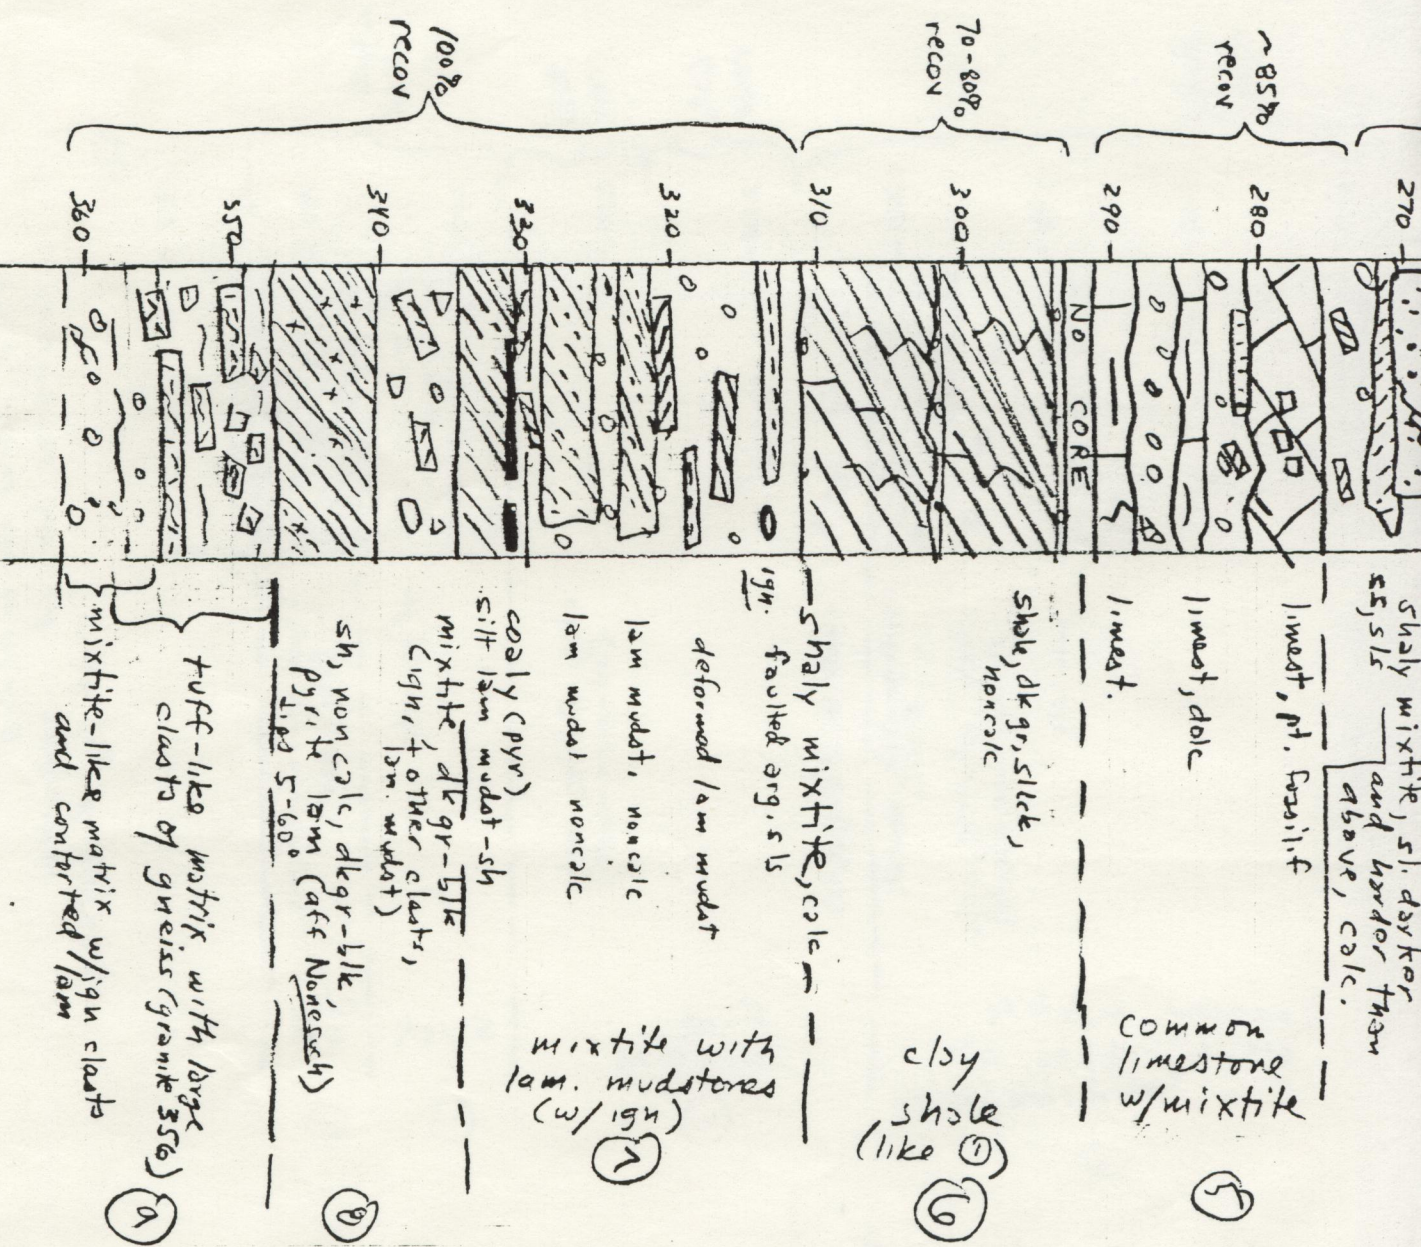 ~85%
recov
70-80%
recov
100%
recov
270
280
290
300
310
320
330
340
350
360
NO CORE
shaly mixtite, sl. darker
and harder than
above, calc.
ss, sls
limest, pt. fossilif
limest, dolc
limest.
common
limestone
w/mixtite
5
shale, dkgr, slick,
noncalc
clay
shale
(like 1)
6
shaly mixtite, calc
ign. faulted arg. sls
deformed lam mudst
lam mudst, noncalc
lam mudst noncalc
coaly (pyr)
silt lam mudst-sh
mixtite with
lam. mudstones
(w/ ign)
7
mixtite, dkgr-blk
(ign, + other clasts,
lam. mudst)
sh, noncalc, dkgr-blk,
pyrite lam (aff Nonesuch)
dips 5-60°
8
tuff-like matrix with large
clasts of gneiss (granite 356)
mixtite-like matrix w/ign clasts
and contorted lam
9